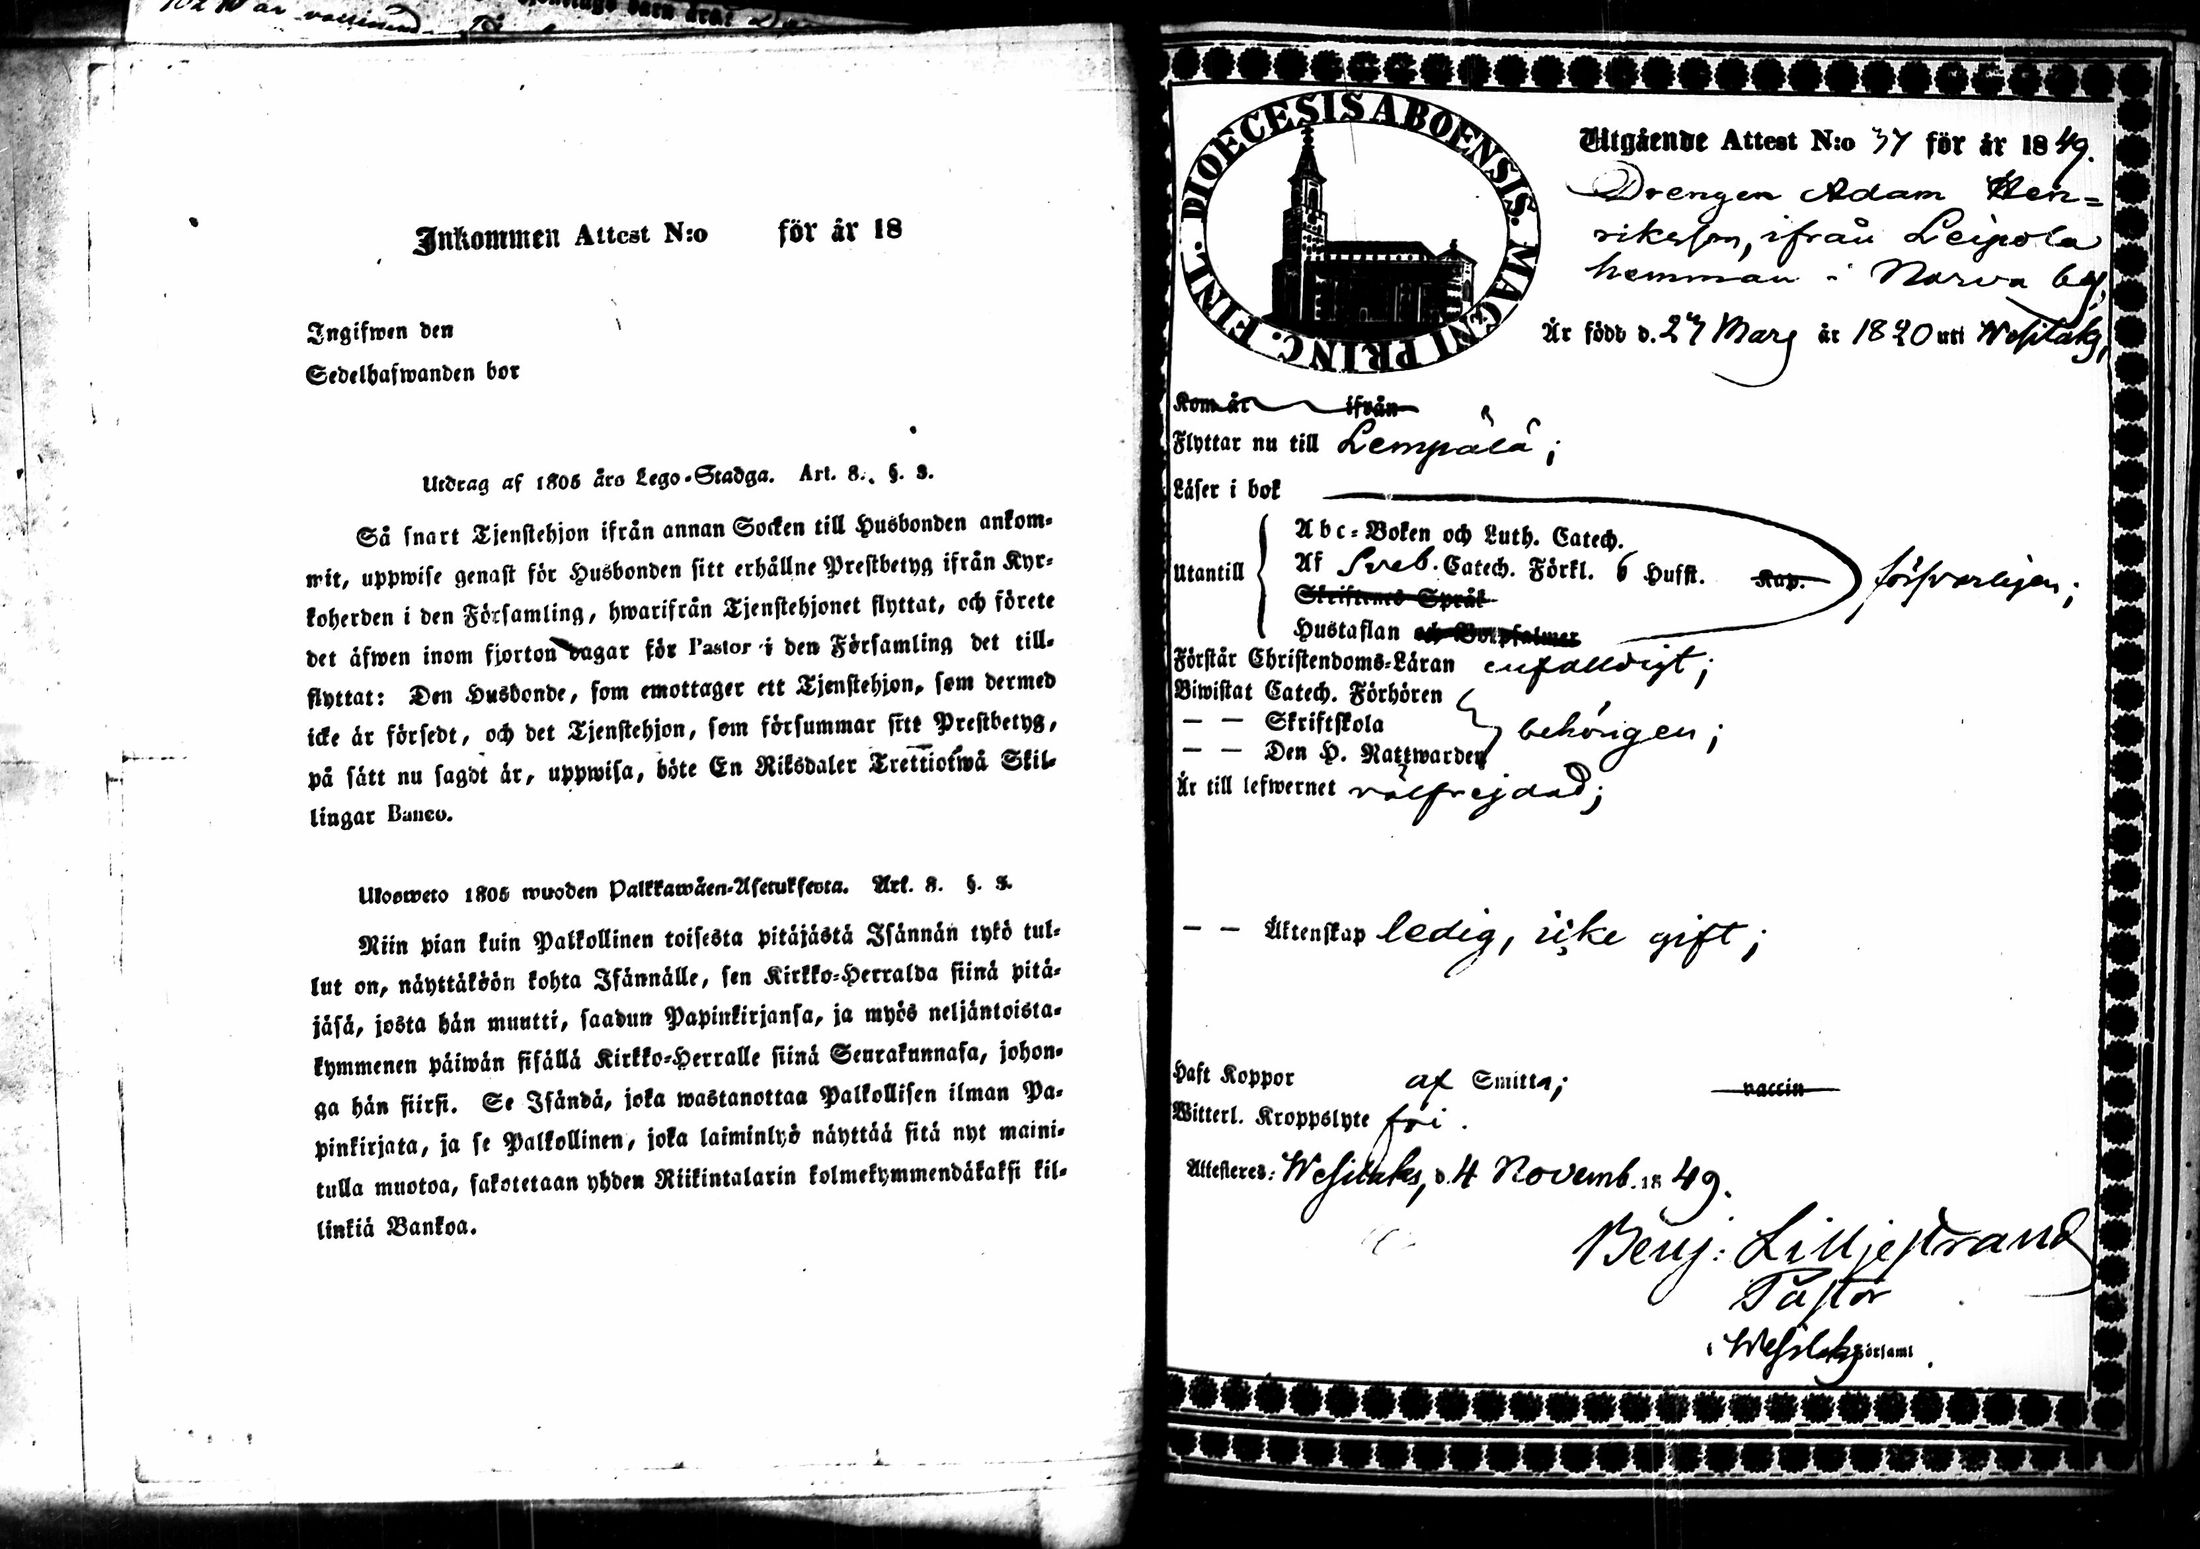 Inkommen Attest N:o för år 18
Ingifwen den
Sedelhafwanden bor
Utdrag af 1805 års Lego-Stadga. Art. 8. §. 3.
Så snart Tjenstehjon ifrån annan Socken till Husbonden ankom-
mit, uppwise genast för Husbonden sitt erhållne Prestbetyg ifrån Kyr-
koherden i den Församling, hwarifrån Tjenstehjonet flyttat, och förete
det äfwen inom fjorton dagar för Pastor i den Församling det till-
flyttat: Den Husbonde, som emottager ett Tjenstehjon, som dermed
icke är försedt, och det Tjenstehjon, som försummar sitt Prestbetyg,
på sätt nu sagdt är, uppwisa, böte En Riksdaler Trettiotwå Skil-
lingar Banco.
Ulosweto 1805 wuoden Palkkawäen-Asetuksesta. Art. 8. §. 3.
Niin pian kuin Palkollinen toisesta pitäjästä Isännän tykö tul-
lut on, näyttäköön kohta Isännälle, sen Kirkko-Herralda siinä pitä-
jäsä, josta hän muutti, saadun Papinkirjansa, ja myös neljäntoista-
kymmenen päiwän sisällä Kirkko-Herralle siinä Seurakunnasa, johon-
ga hän siirsi. Se Isändä, joka wastanottaa Palkollisen ilman Pa-
pinkirjata, ja se Palkollinen, joka laiminlyö näyttää sitä nyt maini-
tulla muotoa, sakotetaan yhden Riikintalarin kolmekymmendäkaksi kil-
linkiä Bankoa.
DIOECESIS ABOENSIS. MAGNI PRINC. FINL.
Utgående Attest N:o 37 för år 1849.
Drengen Adam Hen=
riksson, ifrån Leipola
hemman i Narva by,
Är född d. 27 Mars år 1820 uti Wesilaks,
Kom år ifrån
Flyttar nu till Lempälä;
Läser i bok
Abc-Boken och Luth. Catech.
Utantill Af Sveb. Catech. Förkl. 6 Hufst. Kap. försvarligen;
Skriftenes Språk
Hustaflan och Botpsalmer
Förstår Christendoms-Läran enfalldigt;
Biwistat Catech. Förhören
— — Skriftskola behörigen;
— — Den H. Nattwarden
Är till lefwernet välfrejdad;
— — Äktenskap ledig, icke gift;
Haft Koppor af Smitta; vaccin
Witterl. Kroppslyte fri.
Attesteres: Wesilaks, d. 4 Novemb. 1849.
Benj: Lilljestrand
Pastor
i Wesilaks Församl.